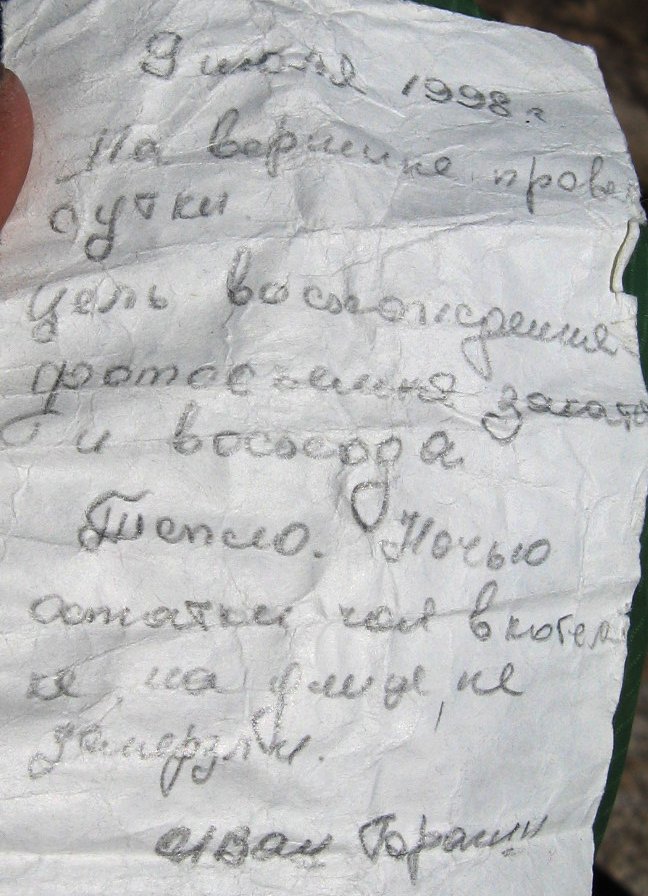 9 июня 1998 г
На вершине провел
сутки
Цель восхождения
фотосъемка заката
и восхода
Тепло. Ночью
остатки чая в котел
ке на улице, не
замерзли.
Иван